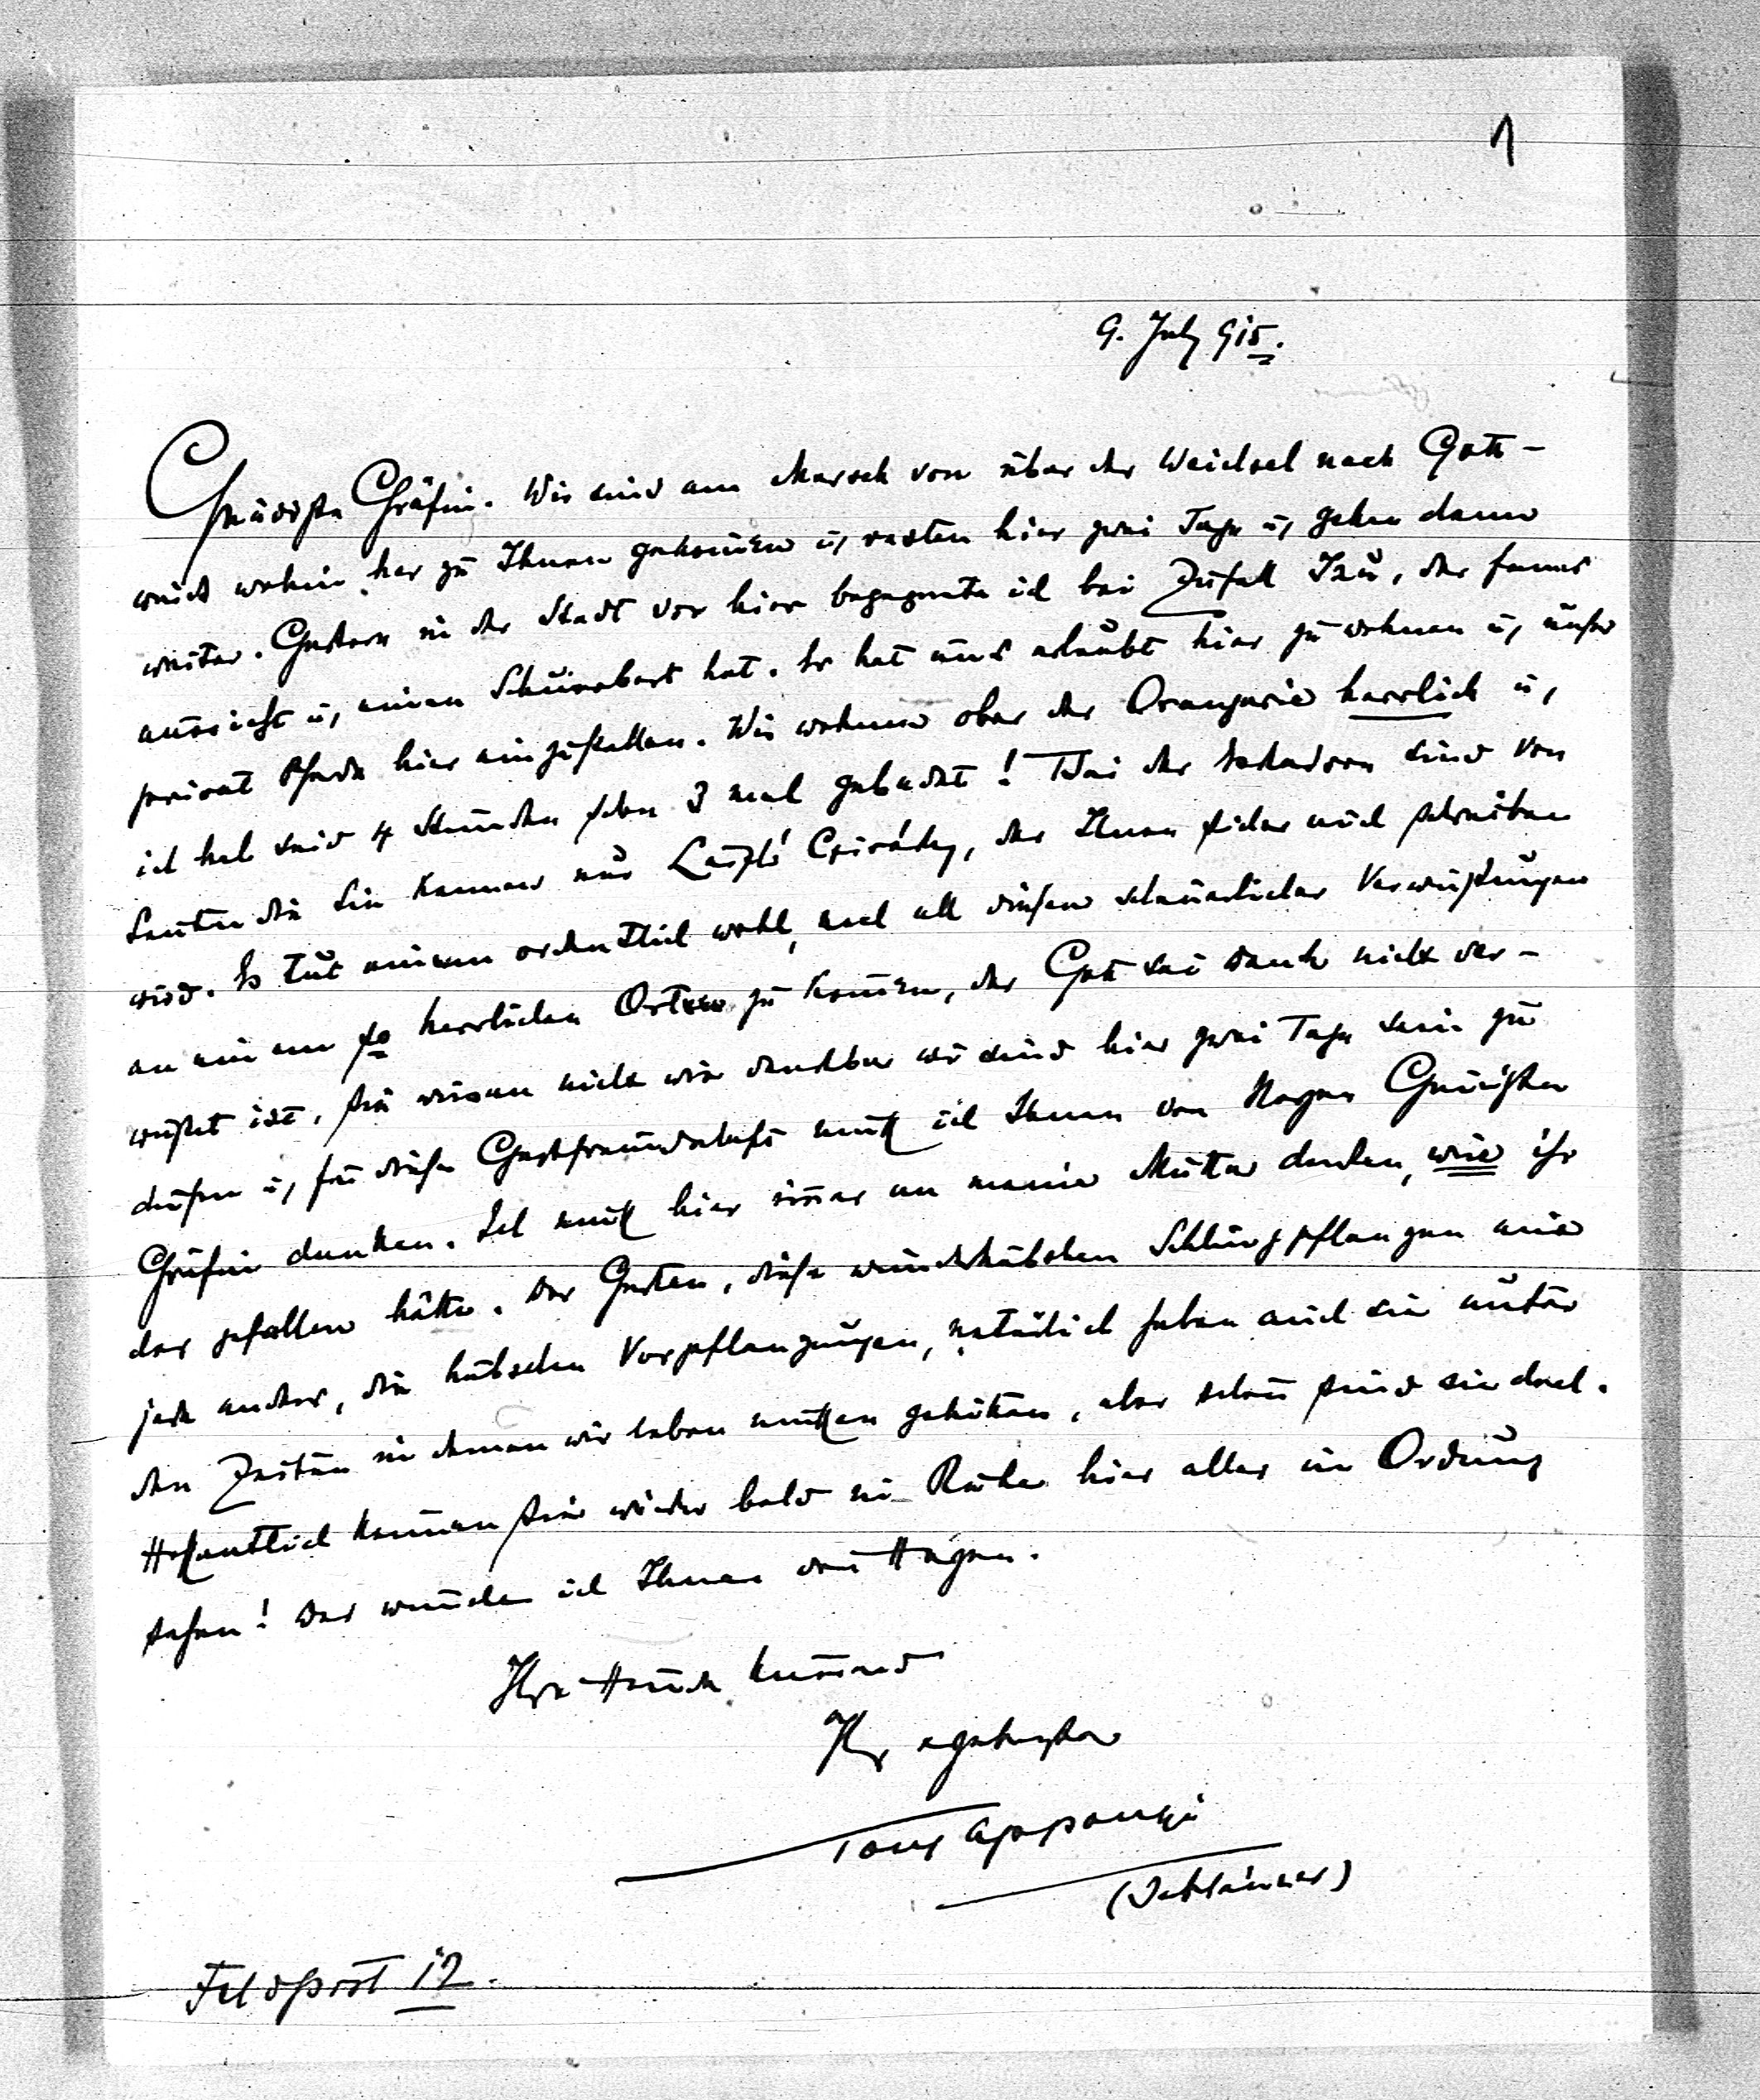 1
9. July 915.
Gnädigste Gräfin. Wir sind am Marsch von über der Weichsel nach Gott-
weiß wohin her zu Ihnen gekommen u, rasten hier zwei Tage u, gehen dann
weiter. Gestern in der Stadt vor hier begegnete ich bei Zufall Izü, der famos
aussieht u, einen Schnurbart hat. Er hat uns erlaubt hier zu wohnen u, unser
privat Pferde hier einzustallen. Wir wohnen ober der Orangerie herrlich u,
ich hab seid 4 Stunden schon 3 mal gebadet! Bei der Eskadron sind von
Leuten die Sie kennen nur László Cziráky, der Ihnen sicher auch schreiben
wird. Es tut einem ordentlich wohl, nach all diesen schauerlichen Verwüstungen
an einem so herrlichen Ort zu kommen, der Gott sei dank nicht ver-
wüstet ist. Sie wissen nicht wie dankbar wir sind hier zwei Tage sein zu
dürfen u, für diese Gastfreundschaft muß ich Ihnen von Herzen Gnädigste
Gräfin danken. Ich muß hier immer an meine Mutter denken, wie ihr
der gefallen hätte. Der Garten, diese wunderhübschen Schlingpflanzen eine
jede anders, die hübschen Vorpflanzungen, natürlich haben auch sie unter
den Zeiten in denen wir leben müssen gelitten, aber schön sind sie doch.
Hoffentlich können Sie wieder bald in Ruhe hier alles in Ordnung
sehen! Das wünsche ich Ihnen vom Herzen.
Ihre Hände küssend
Ihr ergebenster
Tony Apponyi
Feldpost 12.